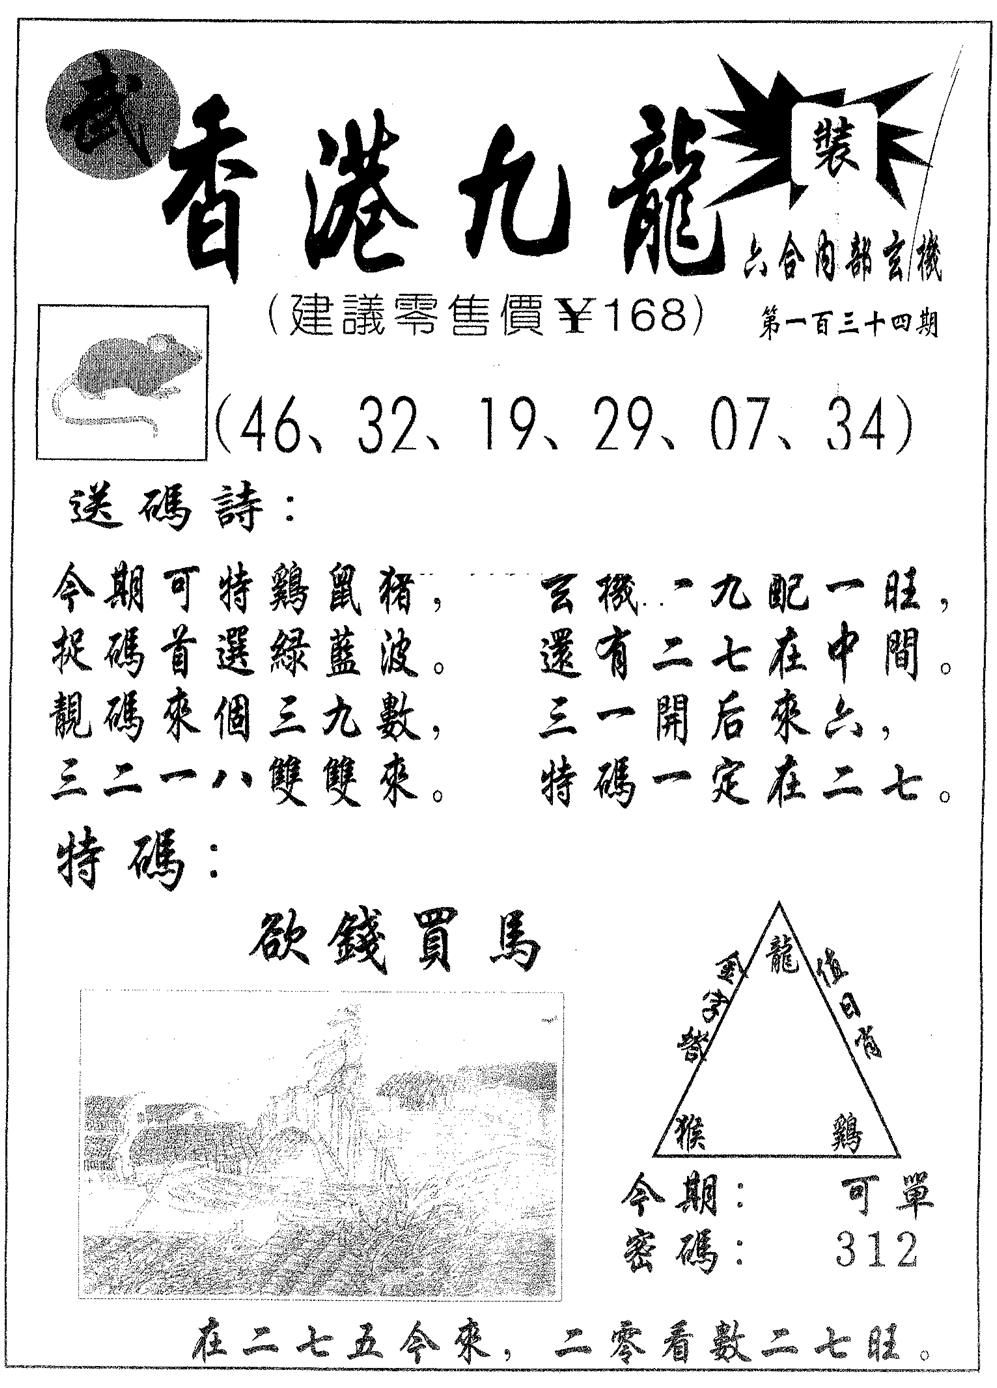 武
香港九龍
裝
六合内部玄機
(建議零售價¥168)
第一百三十四期
(46、32、19、29、07、34)
送碼詩：
今期可特鷄鼠猪，
捉碼首選緑藍波。
靚碼來個三九數，
三二一八雙雙來。
玄機一九配一旺，
還有二七在中間。
三一開后來六，
特碼一定在二七。
特碼：
欲錢買馬
龍
值日肖
猴
鷄
今期：可單
密碼：312
在二七五今來，二零看數二七旺。